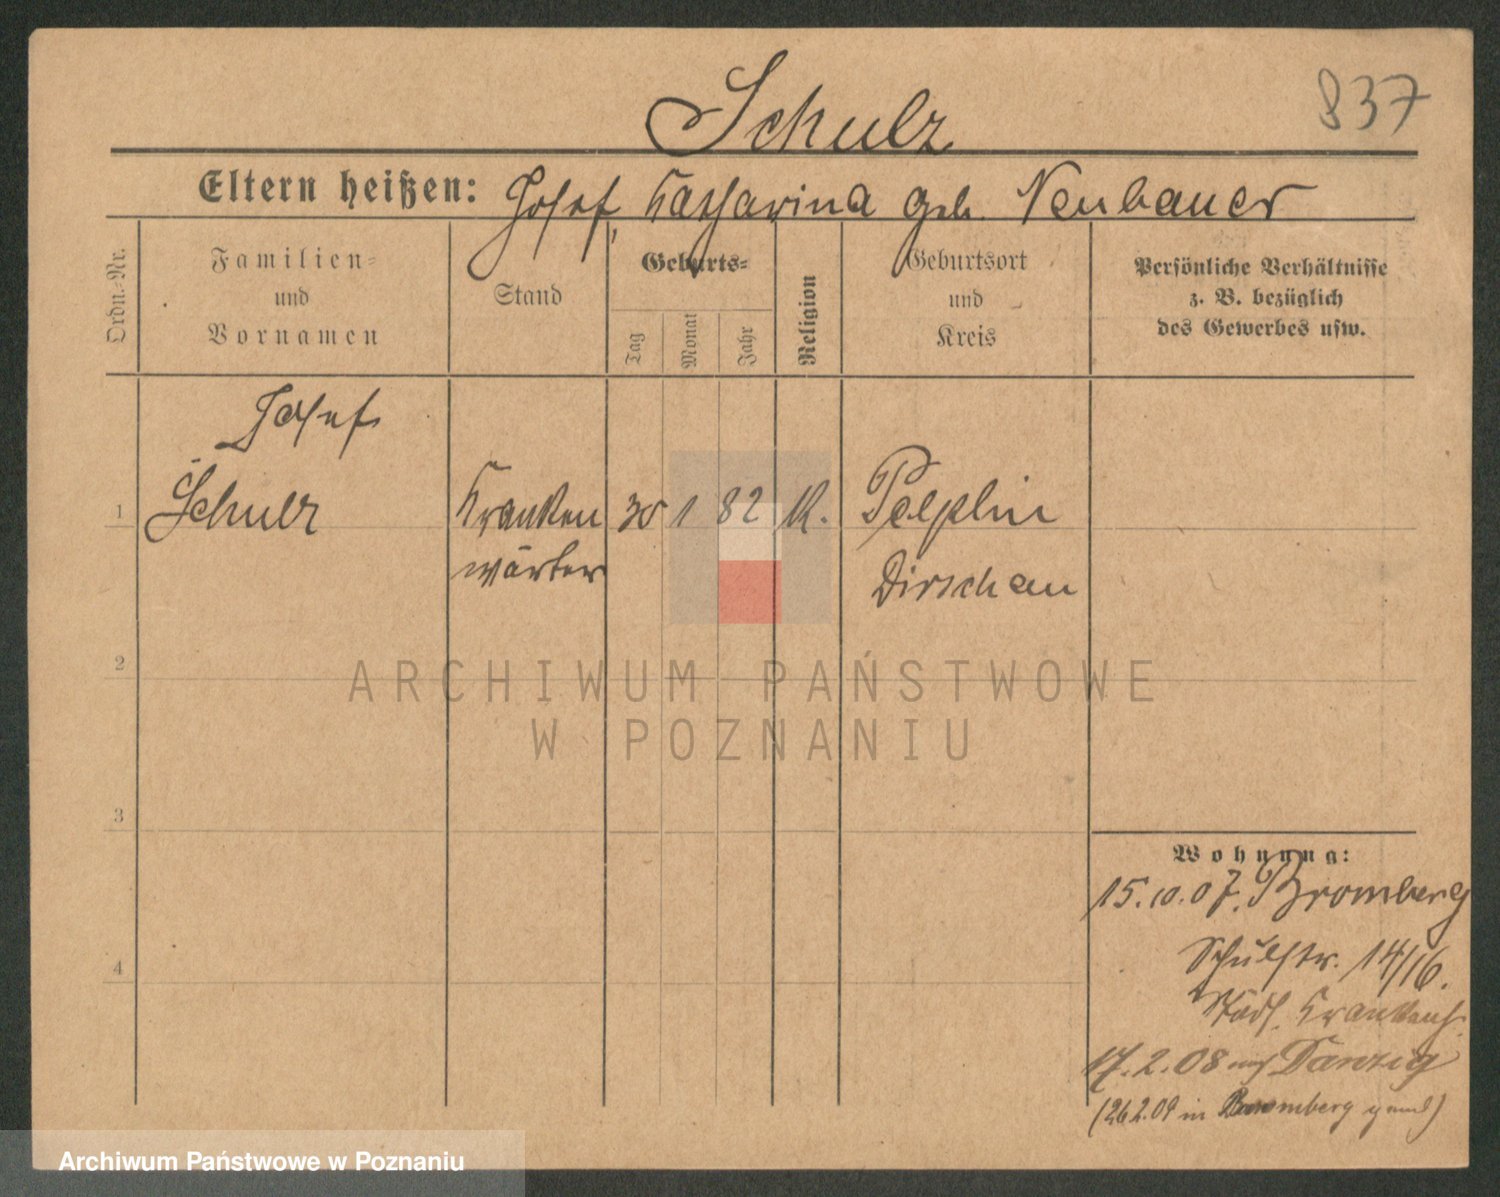 Schulz
837
Eltern heißen: Josef, Katharina geb. Neubauer
Ordn.-Nr.
Familien-
und
Vornamen
Stand
Geburts-
Tag
Monat
Jahr
Religion
Geburtsort
und
Kreis
Persönliche Verhältnisse
z. B. bezüglich
des Gewerbes usw.
Josef
1 Schulz Kranken 30 1 82 K. Pelplin
wärter Dirschau
2
ARCHIWUM PAŃSTWOWE
W POZNANIU
3
Wohnung:
15.10.07. Bromberg
Schulstr. 14/16.
4
Städt. Krankenh.
17.2.08 Danzig
(26.2.09 in Bromberg geml)
Archiwum Państwowe w Poznaniu